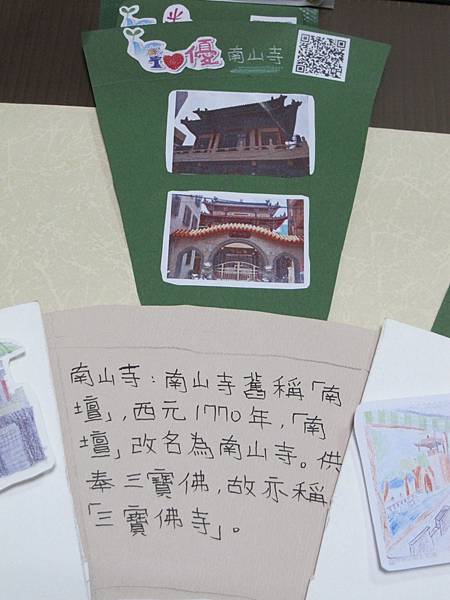 優 南山寺
南山寺：南山寺舊稱「南
壇」，西元1770年，「南
壇」改名為南山寺。供
奉三寶佛，故亦稱
「三寶佛寺」。